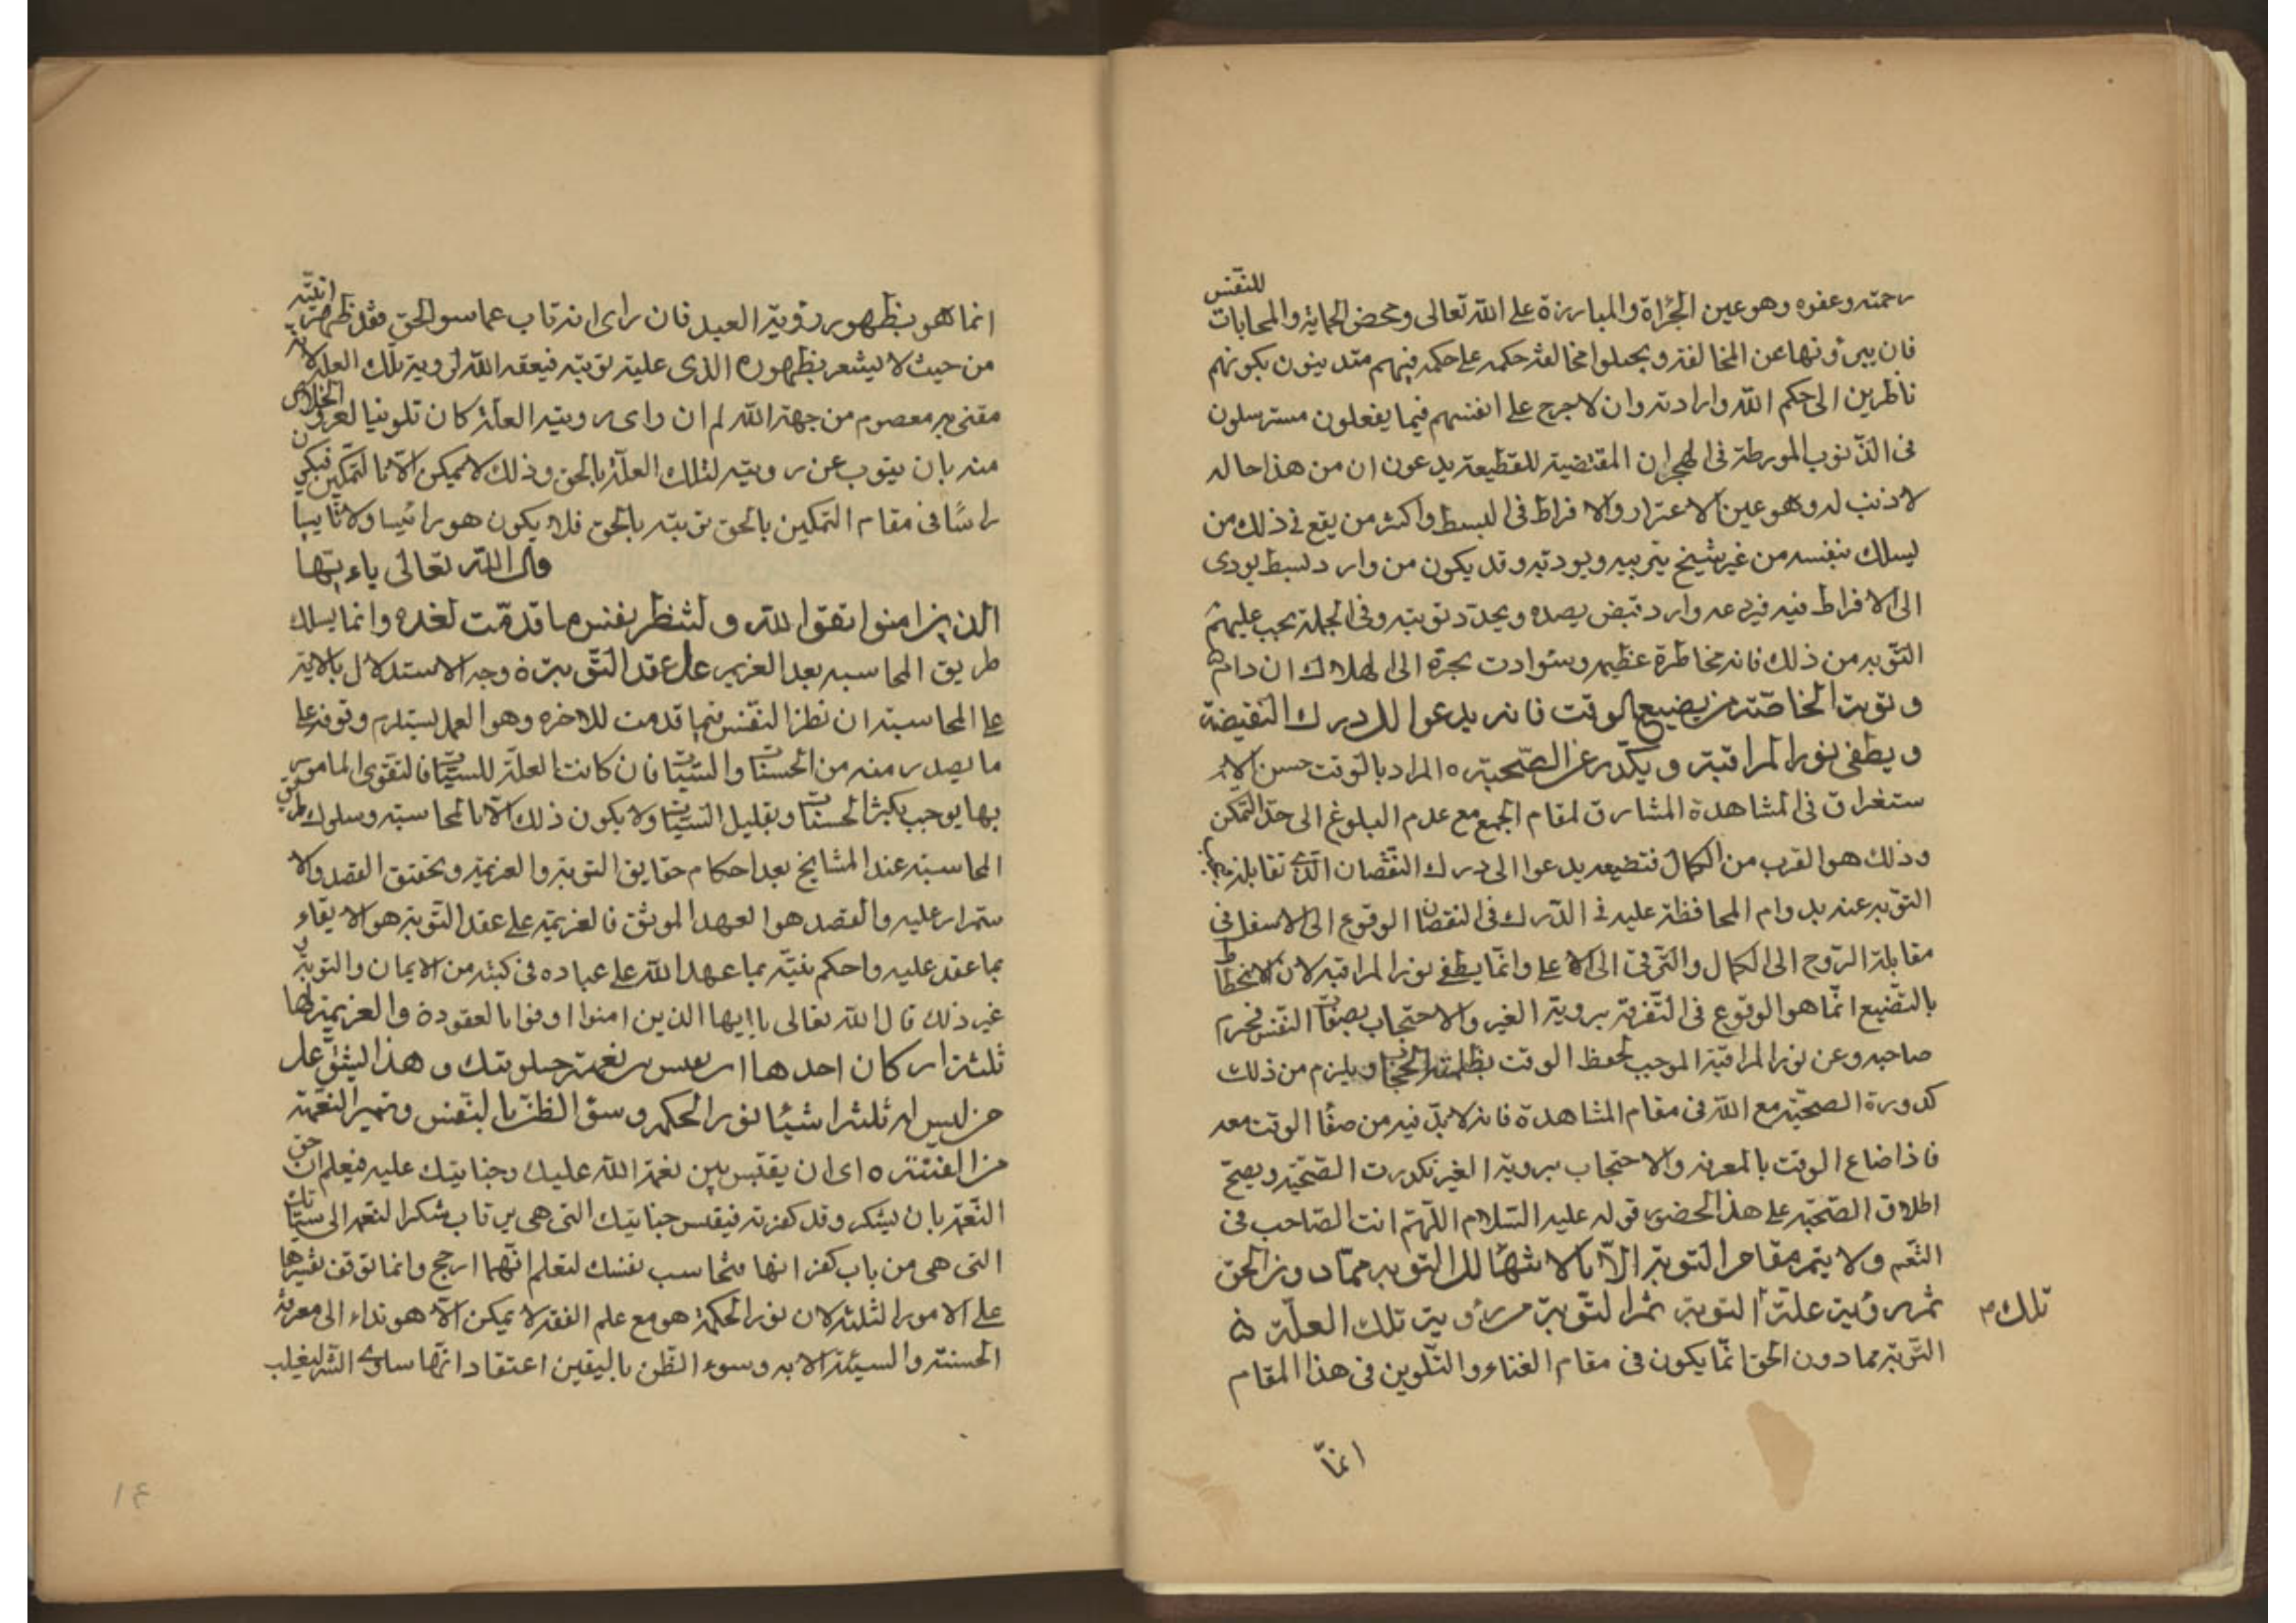 للنفس
رحمته وعفوه وهو عين الجرأة والمبارزة على الله تعالى ومحض الحماية والمحابات
فان يبرؤنها عن المخالفة ويجعلوا مخالفة حكمه على حكمه فهم متدينون بكونهم
ناظرين الى حكم الله وارادته وان لا جرج على انفسهم فيما يفعلون مسترسلون
فى الذنوب المورطة فى الهجران المقتضية للقطيعة يدعون ان من هذا حاله
لا ذنب له وهو عين الاغترار والافراط فى البسط واكثر من يقع فى ذلك من
يسلك بنفسه من غير شيخ يربيه ويودبه وقد يكون من وارد بسط يودى
الى الافراط فيه فيردعه وارد قبض يصده ويجدد توبته وفى الجملة يجب عليهم
التوبه من ذلك فانه مخاطرة عظيمه وسؤادت بجرة الى الهلاك ان دام
وتوبة الخاصة من يضيع الوقت فانه يدعوا الى درك النقيضة
ويطفى نور المراقبة ويكدر عن الصحبة ه المراد بالوقت حسن الا
ستغراق فى المشاهدة المشارق لمقام الجمع مع عدم البلوغ الى حد التمكن
وذلك هو القرب من الكمال فتضيعه يدعوا الى درك النقصان الذى تقابله
التوبه عنه بدوام المحافظة عليه فى الدرك فى النقصان الوقوع الى الاسفل فى
مقابلة الروح الى الكمال والترقى الى الاعلى وانما يطفى نور المراقبه لان الانحطاط
بالتضييع انما هو الوقوع فى التفرقة بروية الغير والاحتجاب بصفات النفس فيحرم
صاحبه وعن نور المراقبة الموجب لحفظ الوقت بظلمة الحجاب ويلزم من ذلك
كدورة الصحبة مع الله فى مقام المشاهدة فانه لا بد فيه من صفا الوقت معه
فاذا ضاع الوقت بالمعرفه والاحتجاب بروية الغير تكدرت الصحبة ويصح
اطلاق الصحبة على هذا الحضور قوله عليه السلام اللهم انت الصاحب فى
النعم ولا يتم مقام التوبة الا بالانتها الى التوبه مما دون الحق
ثم رؤية علة التوبة ثم التوبة من رؤية تلك العلة ه
تلك م
التوبة مما دون الحق انما يكون فى مقام الفناء والتلوين فى هذا المقام
انما
انما هو بظهور رؤية العبد فان راى انه تاب عما سوا الحق فقد ظهر انيته
من حيث لا يشعر بظهوره الذى علية توبته فيعقه الله لرويه تلك العله لانه
مقنى به معصوم من جهة الله لم ان راى رويته العلة كان تلوينا لعرف الخلاص
منه بان يتوب عن رويته لتلك العلة بالحق وذلك لا يمكن الا بالتمكين فيكون
راسا فى مقام التمكين بالحق توبته بالحق فلا يكون هو رائيا ولا تايبا
قال الله تعالى ياءيها
الذين امنوا اتقوا لله ولتنظر نفس ما قدمت لغد ه وانما يسلك
طريق المحاسبه بعد العزيمه على عقد التوبة ه وجه الاستدلال بالاية
على المحاسبة ان نظر النفس فيما قدمت للاخره وهو العمل يستلزم وقوفه على
ما يصدر منه من الحسنات والسيئات فان كانت العلة للسيئات فالتقوى المامور
بها يوجب بكثر الحسنات وتقليل السيئات ولا يكون ذلك الا بالمحاسبة وسلوك طريق
المحاسبة عند المشايخ بعد احكام حقايق التوبة والعزيمة وتحقيق القصد والا
ستمرار عليه والقصد هو العهد الموثق فالعزيمة على عقد التوبة هو الايفاء
بما عقد عليه واحكم بنيته بما عهد الله على عباده فى كتبه من الايمان والتوبة و
غير ذلك قال الله تعالى ياايها الذين امنوا اوفوا بالعقود ه والعزيمة لها
ثلثة اركان احدها ان يقيس بين نعمته وجنايتك وهذا يشق على
من ليس له ثلثة اشيا نور الحكمه وسوء الظن بالنفس وتمييز النعمة
من الفتنة ه اى ان يقيس بين نعمة الله عليك وجنايتك عليه فيعلم ان حق
النعمة بان يشكر وقد كفرته فيقيس جنايتك التى هى يرتاب شكر النعمة الى سيئاتك
التى هى من باب كفرانها فتحاسب نفسك لتعلم انهما ارجح وانما توقف تفسيرها
على الامور الثلثة لان نور الحكمة هو مع علم الفقه لا يمكن الا هو نداء الى معرفة
الحسنة والسيئة الا به وسوء الظن باليقين اعتقاد انها ساوى الشر ليغلب
١٤